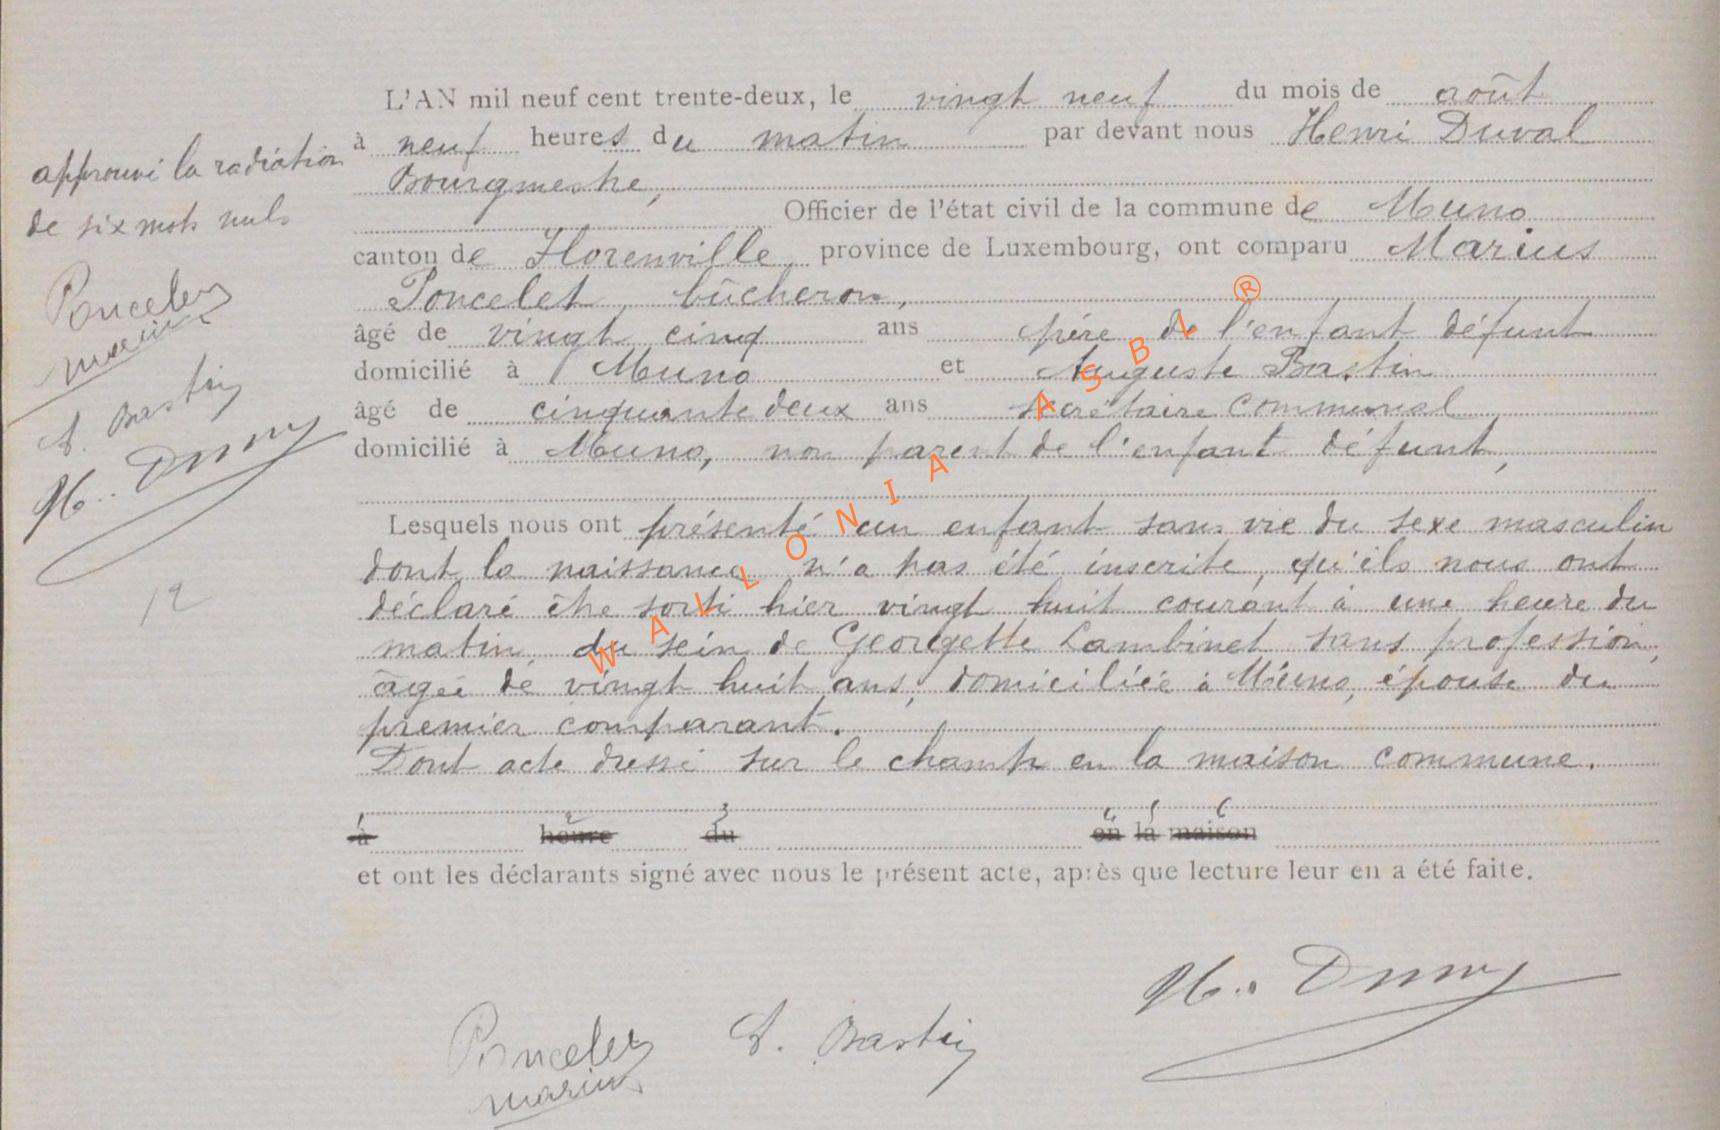 L'AN mil neuf cent trente-deux, le vingt neuf du mois de août
à neuf heures du matin par devant nous Henri Duval
Bourgmestre,
Officier de l'état civil de la commune de Muno
canton de Florenville province de Luxembourg, ont comparu Marius
Poncelet, bûcheron,
âgé de vingt cinq ans père de l'enfant défunt
domicilié à Muno et Auguste Bastin
âgé de cinquante deux ans secrétaire communal
domicilié à Muno, non parent de l'enfant défunt,
Lesquels nous ont présenté un enfant sans vie du sexe masculin
dont la naissance n'a pas été inscrite, qu'ils nous ont
déclaré être sorti hier vingt huit courant à une heure du
matin, du sein de Georgette Lambinet sans profession,
âgée de vingt huit ans, domiciliée à Muno, épouse du
premier comparant.
Dont acte dressé sur le champ en la maison commune.
1 2 3 4 5 6
à heure du en la maison
et ont les déclarants signé avec nous le présent acte, après que lecture leur en a été faite.
Poncelet A. Bastin H. Duval
Marius
approuvé la radiation
de six mots nuls
Poncelet
Marius
A. Bastin
H. Duval
12
WALLONIA ASBL ®